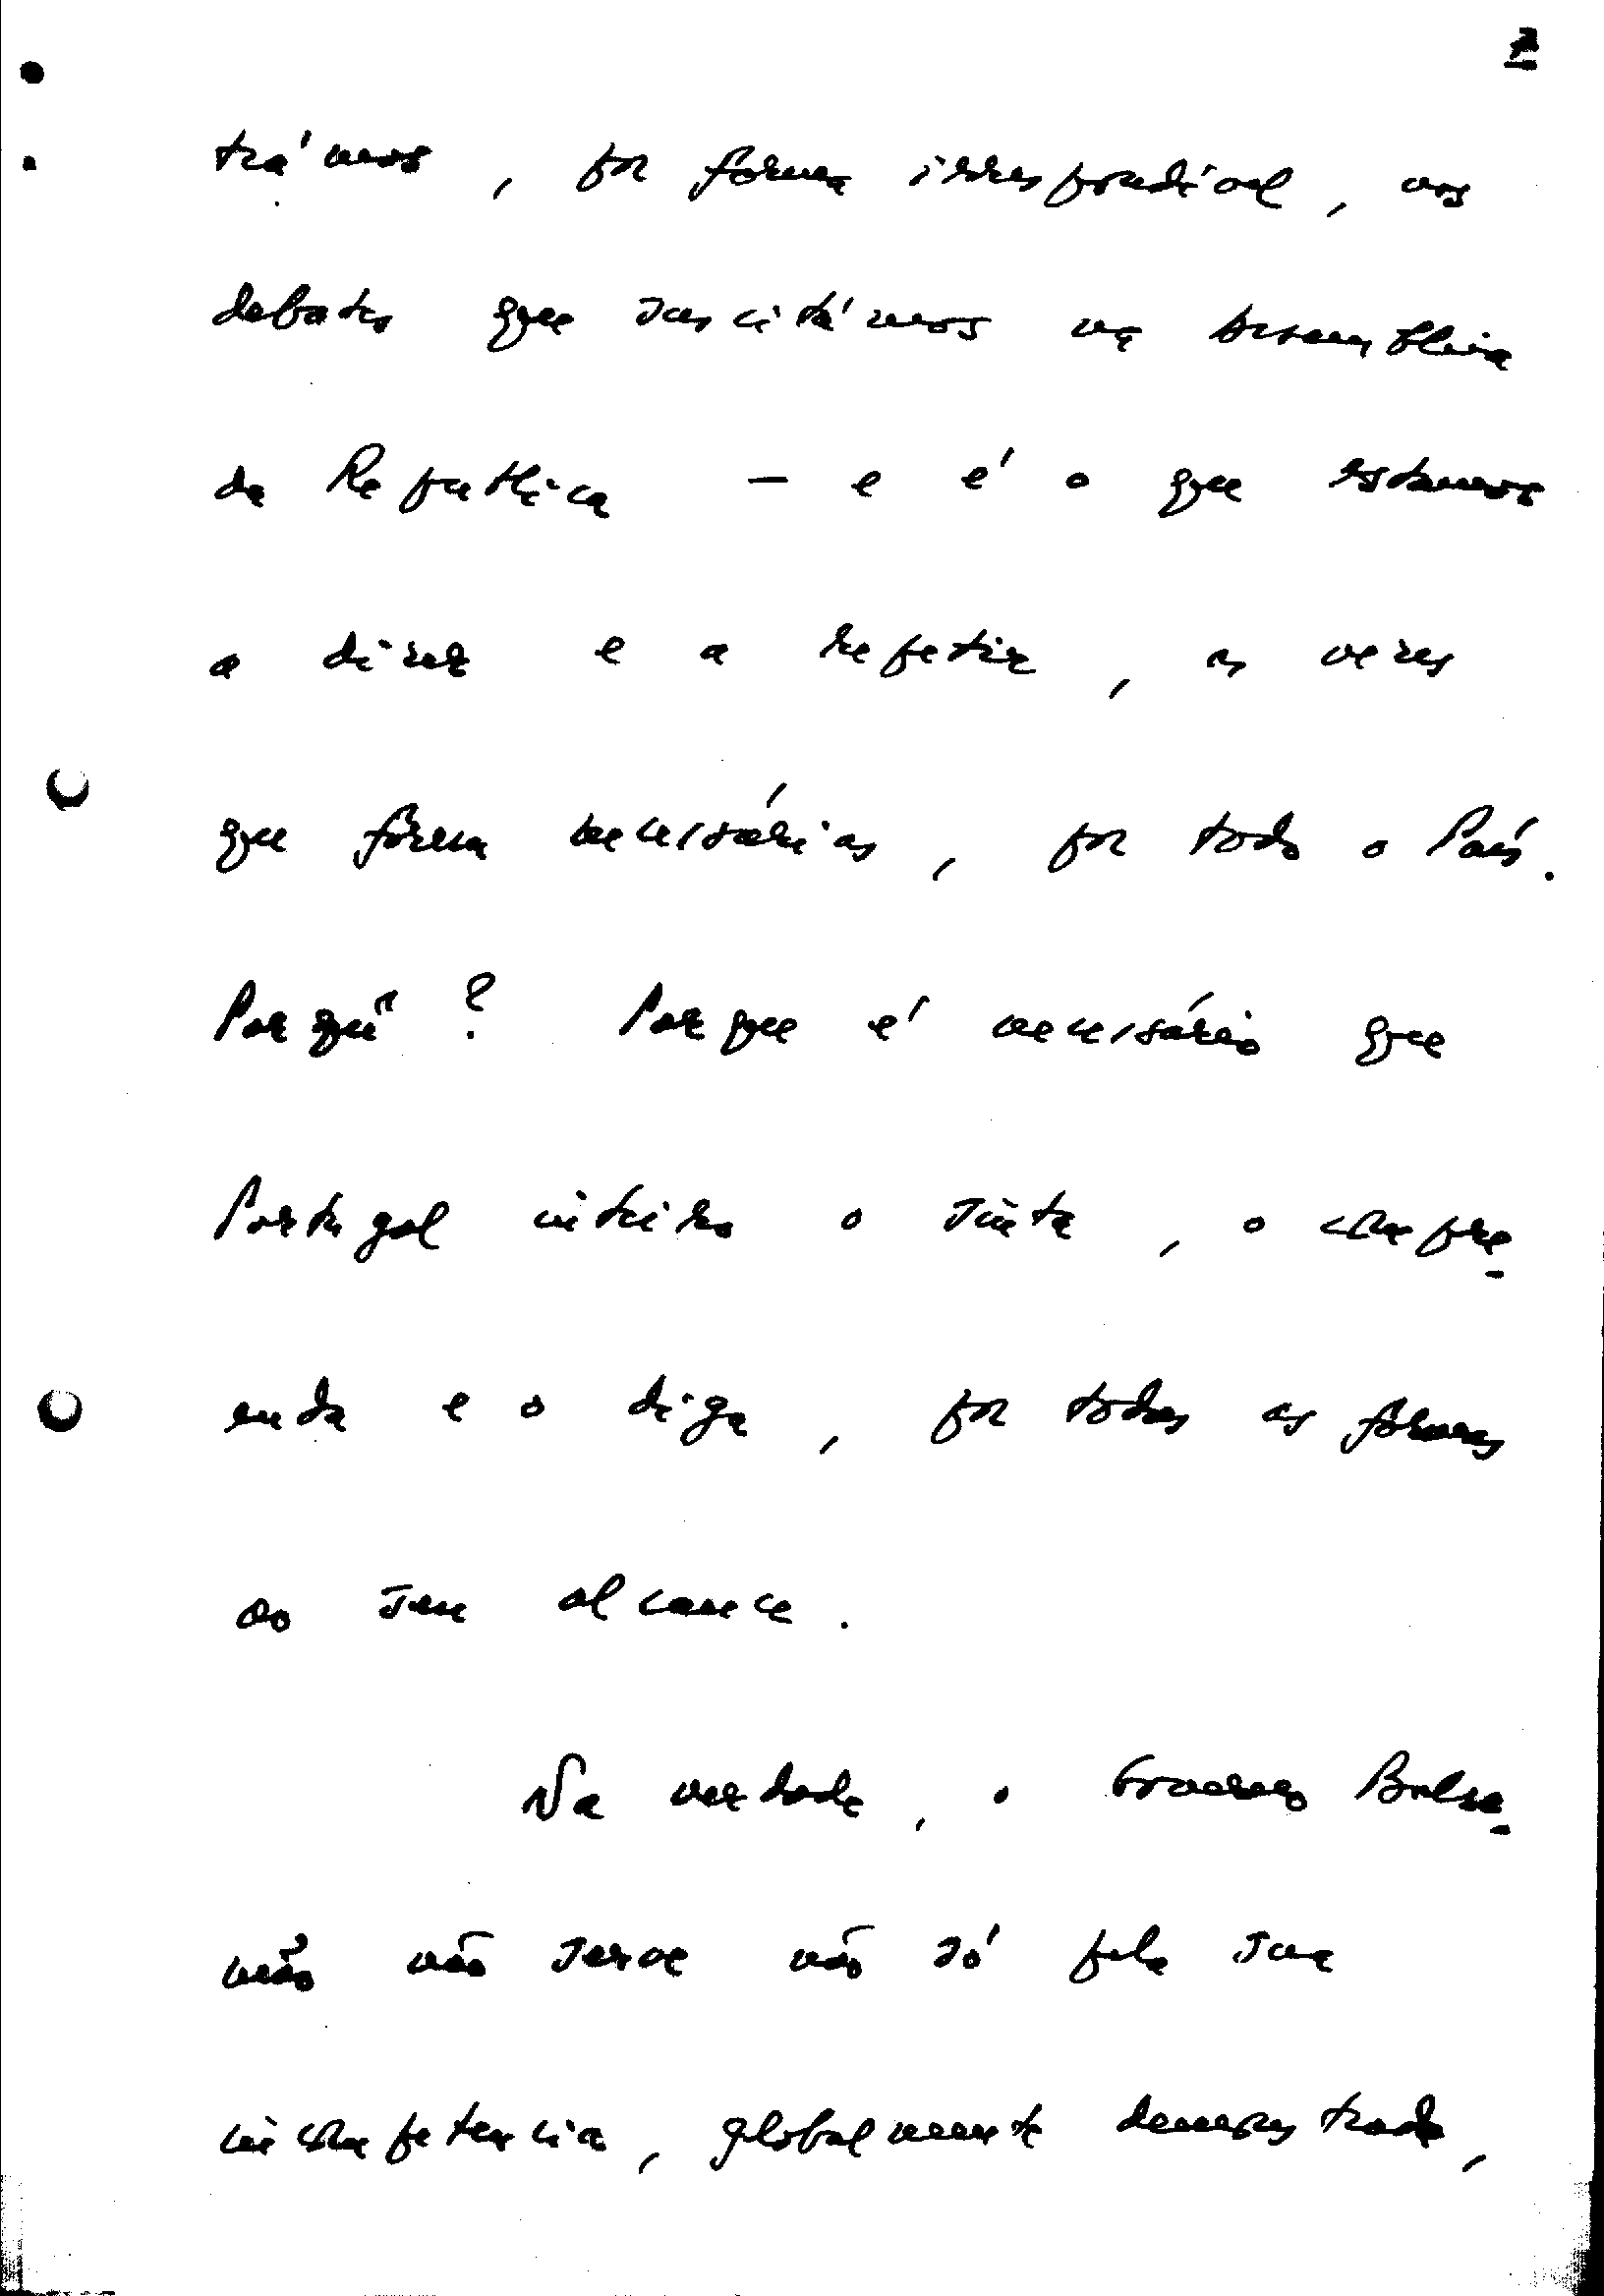 2
trámos, por forma irrespondível, nos
debates que suscitámos na Assembleia
da República — e é o que estamos
a dizer e a repetir, as vezes
que forem necessárias, por todo o País.
Porquê? Porque é necessário que
Portugal inteiro o sinta, o compre-
enda e o diga, por todas as formas
ao seu alcance.
Na verdade, o Governo Balse-
mão não serve não só pela sua
incompetência, globalmente demonstrada,